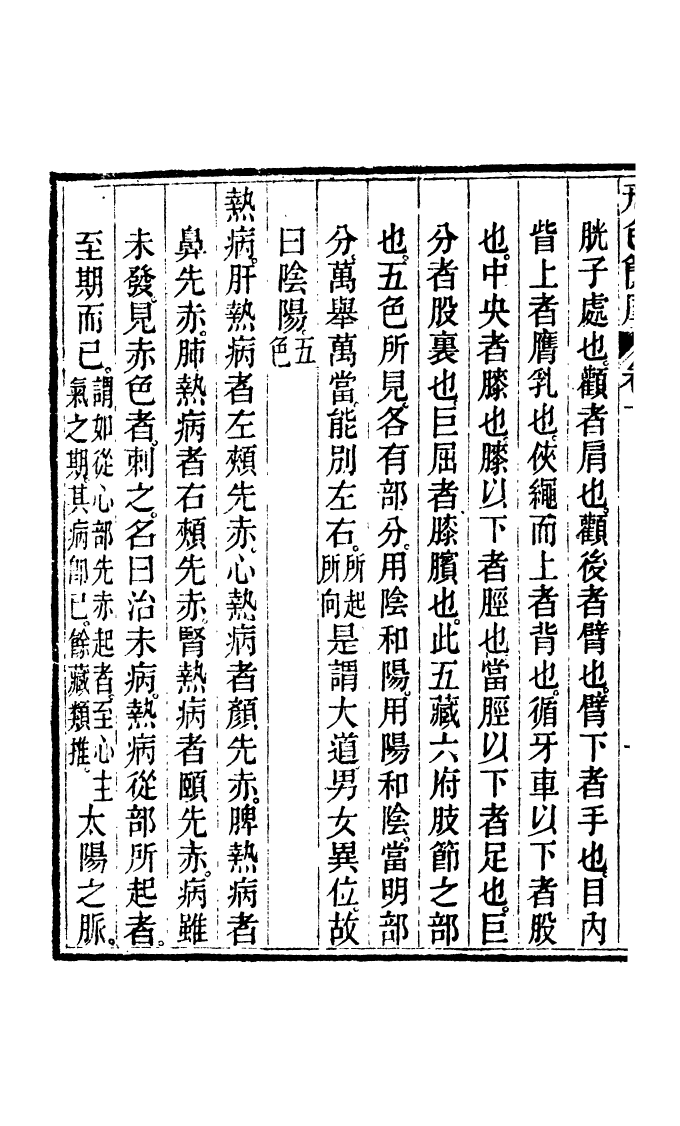 胱子處也。顴者肩也。顴後者臂也。臂下者手也。目內
眥上者膺乳也。俠繩而上者背也。循牙車以下者股
也。中央者膝也。膝以下者脛也當脛以下者足也。巨
分者股裏也。巨屈者膝臏也。此五藏六府肢節之部
也。五色所見。各有部分。用陰和陽。用陽和陰。當明部
分。萬舉萬當。能別左右。所起所向是謂大道男女異位。故
曰陰陽。五色
熱病。肝熱病者左頰先赤。心熱病者顏先赤。脾熱病者
鼻先赤。肺熱病者右頰先赤。腎熱病者頤先赤。病雖
未發。見赤色者。刺之。名曰治未病。熱病從部所起者。
至期而已。謂如從心部先赤起者。至心主氣之期。其病卽已。餘藏類推。太陽之脈。